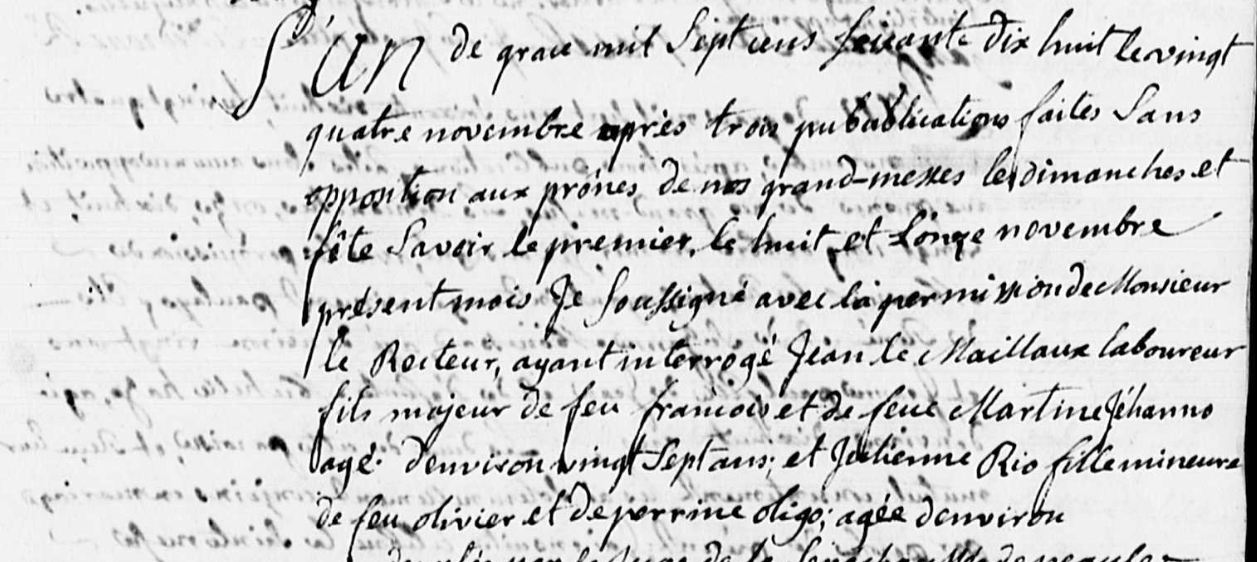 L'an de grace mil sept cens soixante dix huit le vingt
quatre novembre après trois pubublications faites sans
opposition aux prônes de nos grand-messes les dimanches et
fête savoir le premier, le huit et l'onze novembre
présent mois Je soussigné avec la permission de Monsieur
le Recteur, ayant interrogé Jean le Maillaux laboureur
fils majeur de feu francois et de feue Martine Jéhanno
agé d'environ vingt sept ans; et Julienne Rio fille mineure
de feu olivier et de perrine oligo; agée d'environ